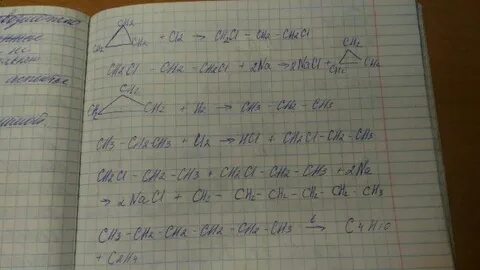 CH2 CH2 CH2 + Cl2 → CH2Cl - CH2 - CH2Cl
CH2Cl - CH2 - CH2Cl + 2Na → 2NaCl + CH2 CH2 CH2
CH2 CH2 CH2 + H2 → CH3 - CH2 - CH3
CH3 - CH2 - CH3 + Cl2 → HCl + CH2Cl - CH2 - CH3
CH2Cl - CH2 - CH3 + CH2Cl - CH2 - CH3 + 2Na
→ 2NaCl + CH3 - CH2 - CH2 - CH2 - CH2 - CH3
CH3 - CH2 - CH2 - CH2 - CH2 - CH3 t→ C4H10
+ C2H4